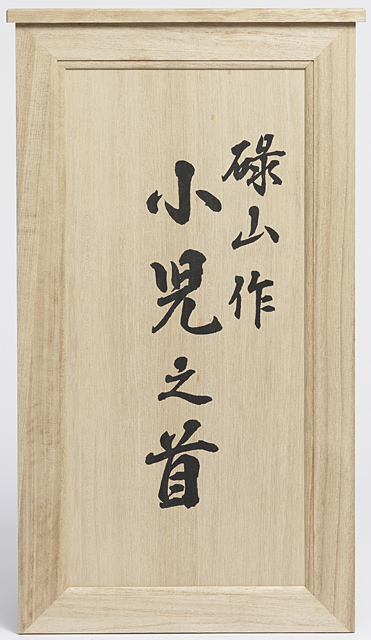 碌山作
小児之首